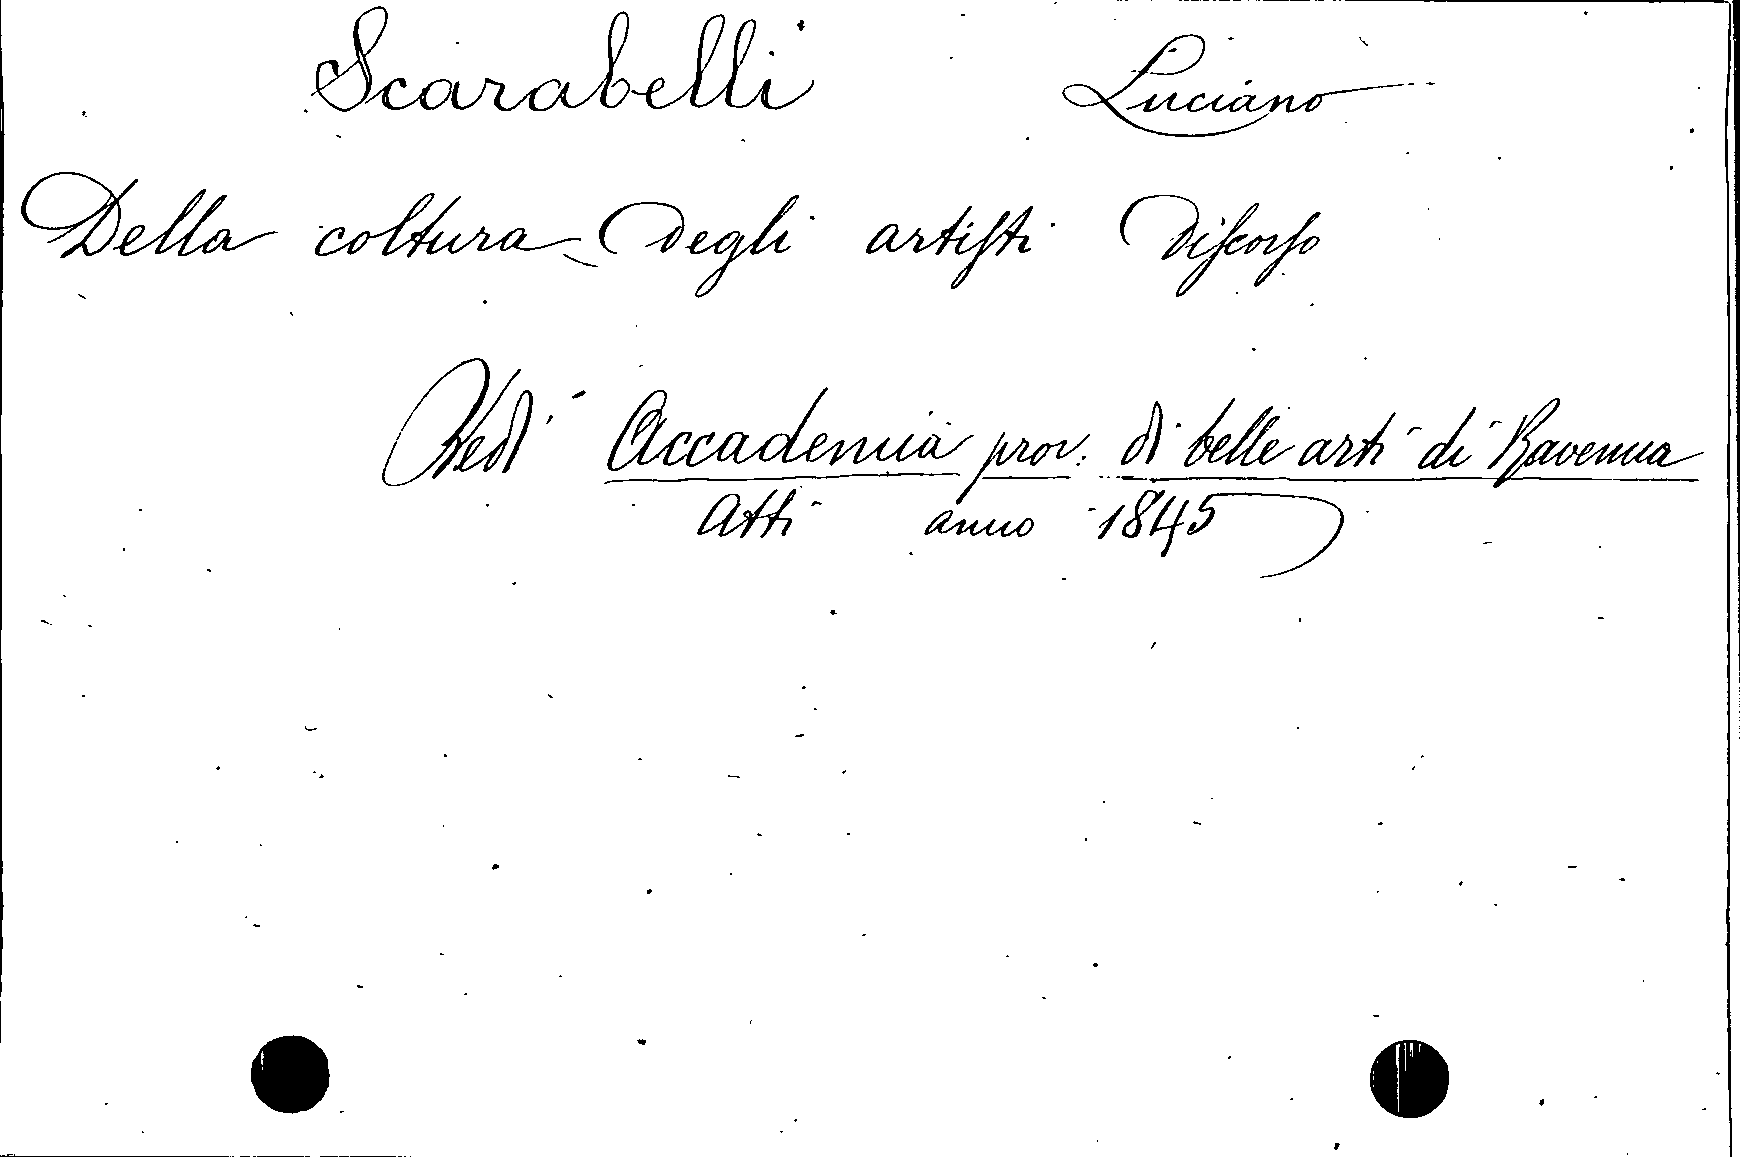 Scarabelli Luciano
Della coltura degli artisti Discorso
Vedi Accademia prov. di belle arti di Ravenna
Atti anno 1845